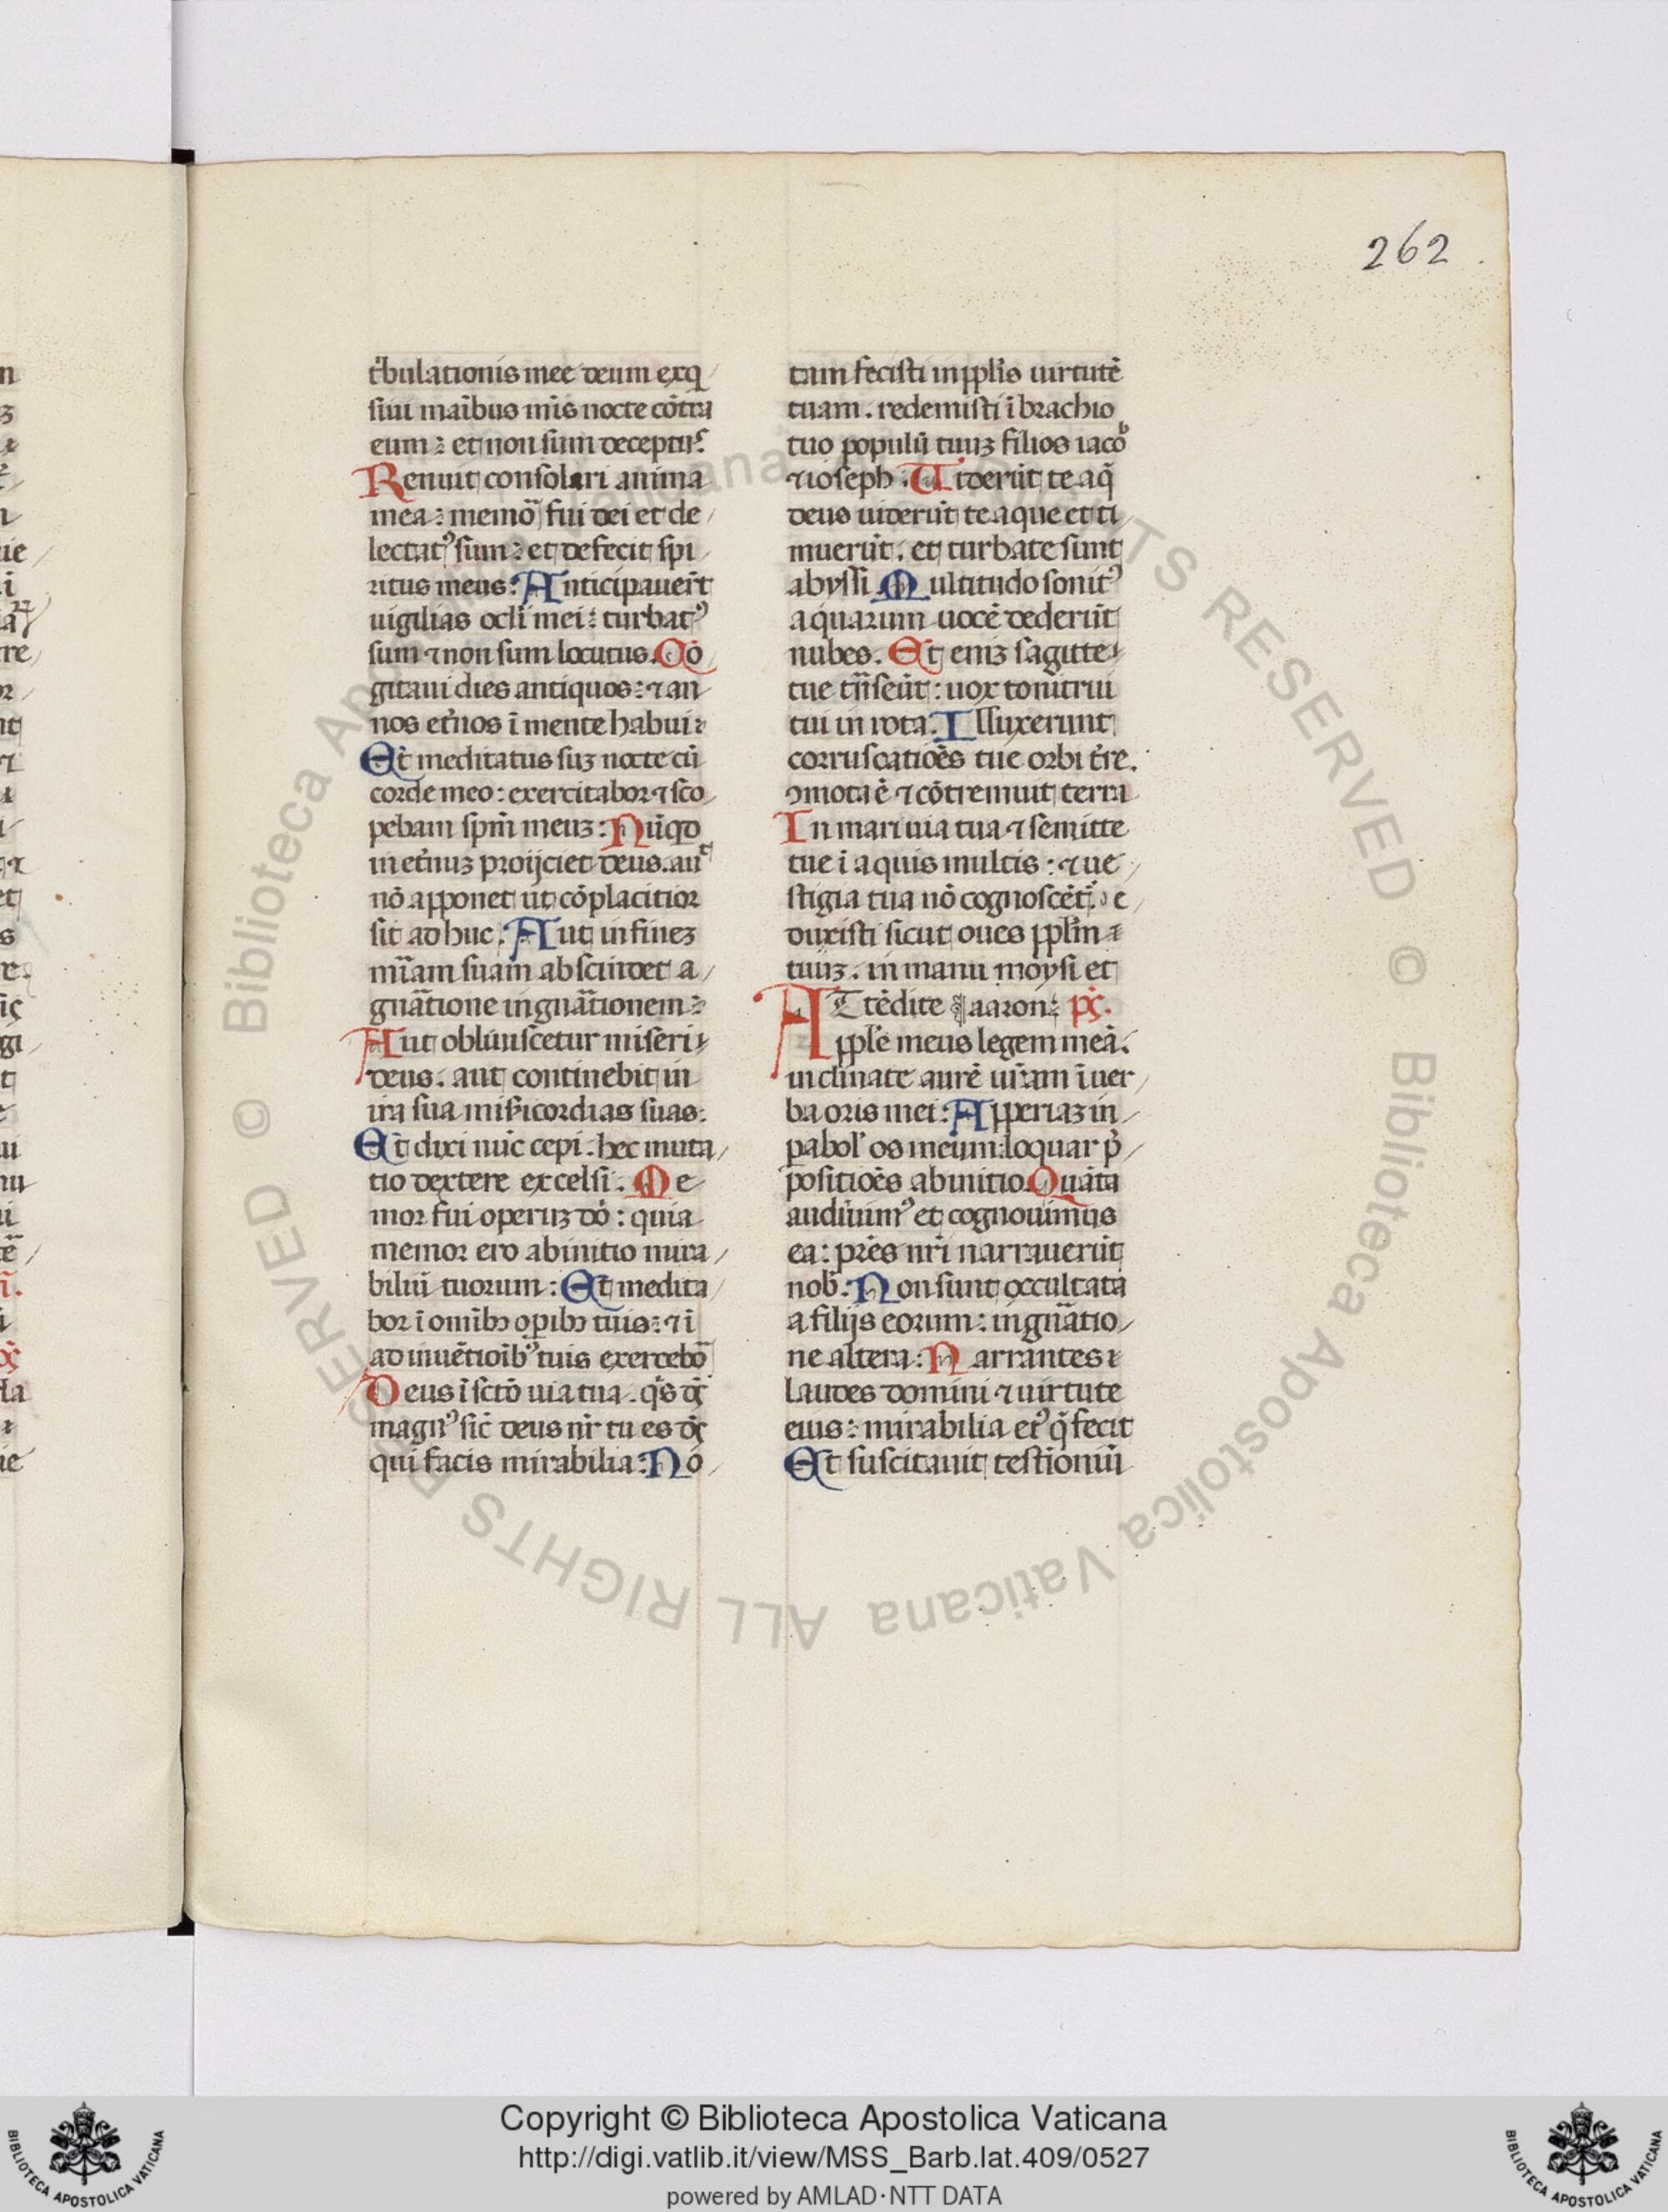 262
t̓bulationis mee deum exq̓
siui maib̄us mīs nocte cōtra
eum : et non sum deceptus
Renuit consolari anima
mea : memō fui dei et de
lectatꝰ sum : et defecit spi
ritus meus : Anticipauerūt
uigilias oclī mei : turbatꝰ
sum ⁊ non sum locutus. Co
gitaui dies antiquos : ⁊ an
nos et̓nos ī mente habui :
Et meditatus suꝫ nocte cū
corde meo : exercitabor ⁊ sco
pebam spm̄ meuꝫ : Nūqd̓
in et̓nuꝫ proijciet deus. aut
nō apponet ut cōplacitior
sit adhuc. Aut in fineꝫ
mīam suam abscindet a
gnātione in gnātionem :
Aut obliuiscetur miseri
deus. aut continebit in
ira sua miẜicordias suas :
Et dixi nūc cepi. hec muta
tio dextere excelsi. Me
mor fui operuꝫ dō : quia
memor ero ab initio mira
biliū tuorum : Et medita
bor ī omībꝫ oꝑibꝫ tuis : ⁊ ī
adinuētioībꝰ tuis exercebō
Deus ī sctō uia tua. qͥs dꝫ
magnꝰ sic̄ deus nr̄ tu es dꝫ
qui facis mirabilia : No
tam fecisti in pplīs uirtutē
tuam. redemisti ī brachio
tuo populū tuuꝫ filios iacob
⁊ ioseph. Uiderūt te aq̄
deus uiderūt te aque et ti
muerūt. et turbate sunt
abyssi. Multitudo sonitꝰ
aquarum uocē dederūt
nubes. Et eniꝫ sagitte
tue trn̄seūt : uox tonitrui
tui in rota. Illuxerunt
corruscatiōes tue orbi t̓re.
ꝯmota ē ⁊ cōtremuit terra
In mari uia tua ⁊ semitte
tue ī aquis multis : ⁊ ue
stigia tua nō cognoscēt̓. De
duxisti sicut oues pplm̄
tuuꝫ. in manu moysi et
ATtēdite ¶ aaron : pꝫ.
pple meus legem meā.
inclinate aurē ur̄am ī uer
ba oris mei : Apperiaꝫ in
ꝑabolꝰ os meum : loquar p̓
positiōes ab initio. Quāta
audiuimꝰ et cognouimus
ea : pr̄es nr̄i narrauerūt
nob̄. Non sunt occultata
a filijs eorum : in gnātio
ne altera : Narrantes
laudes domini ⁊ uirtute
eius : mirabilia eiꝰ q̄ fecit
Et suscitauit testioniū
© Biblioteca Apostolica Vaticana ALL RIGHTS RESERVED © Biblioteca Apostolica Vaticana ALL RIGHTS RESERVED
Copyright © Biblioteca Apostolica Vaticana
http://digi.vatlib.it/view/MSS_Barb.lat.409/0527
powered by AMLAD·NTT DATA
BIBLIOTECA APOSTOLICA VATICANA
BIBLIOTECA APOSTOLICA VATICANA